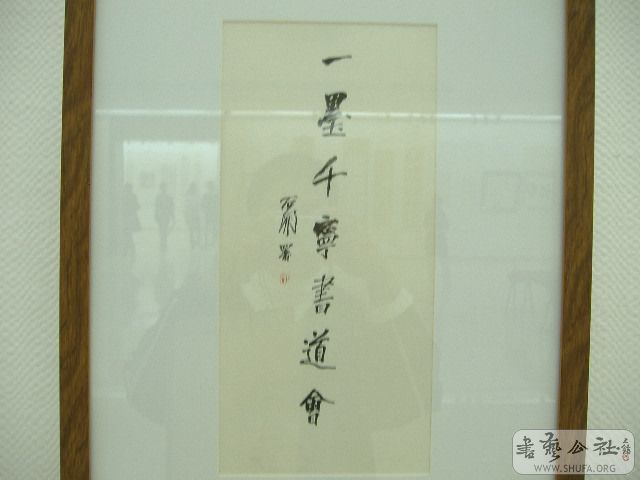 一墨千寧書道會
石開署
書藝公社
WWW.SHUFA.ORG